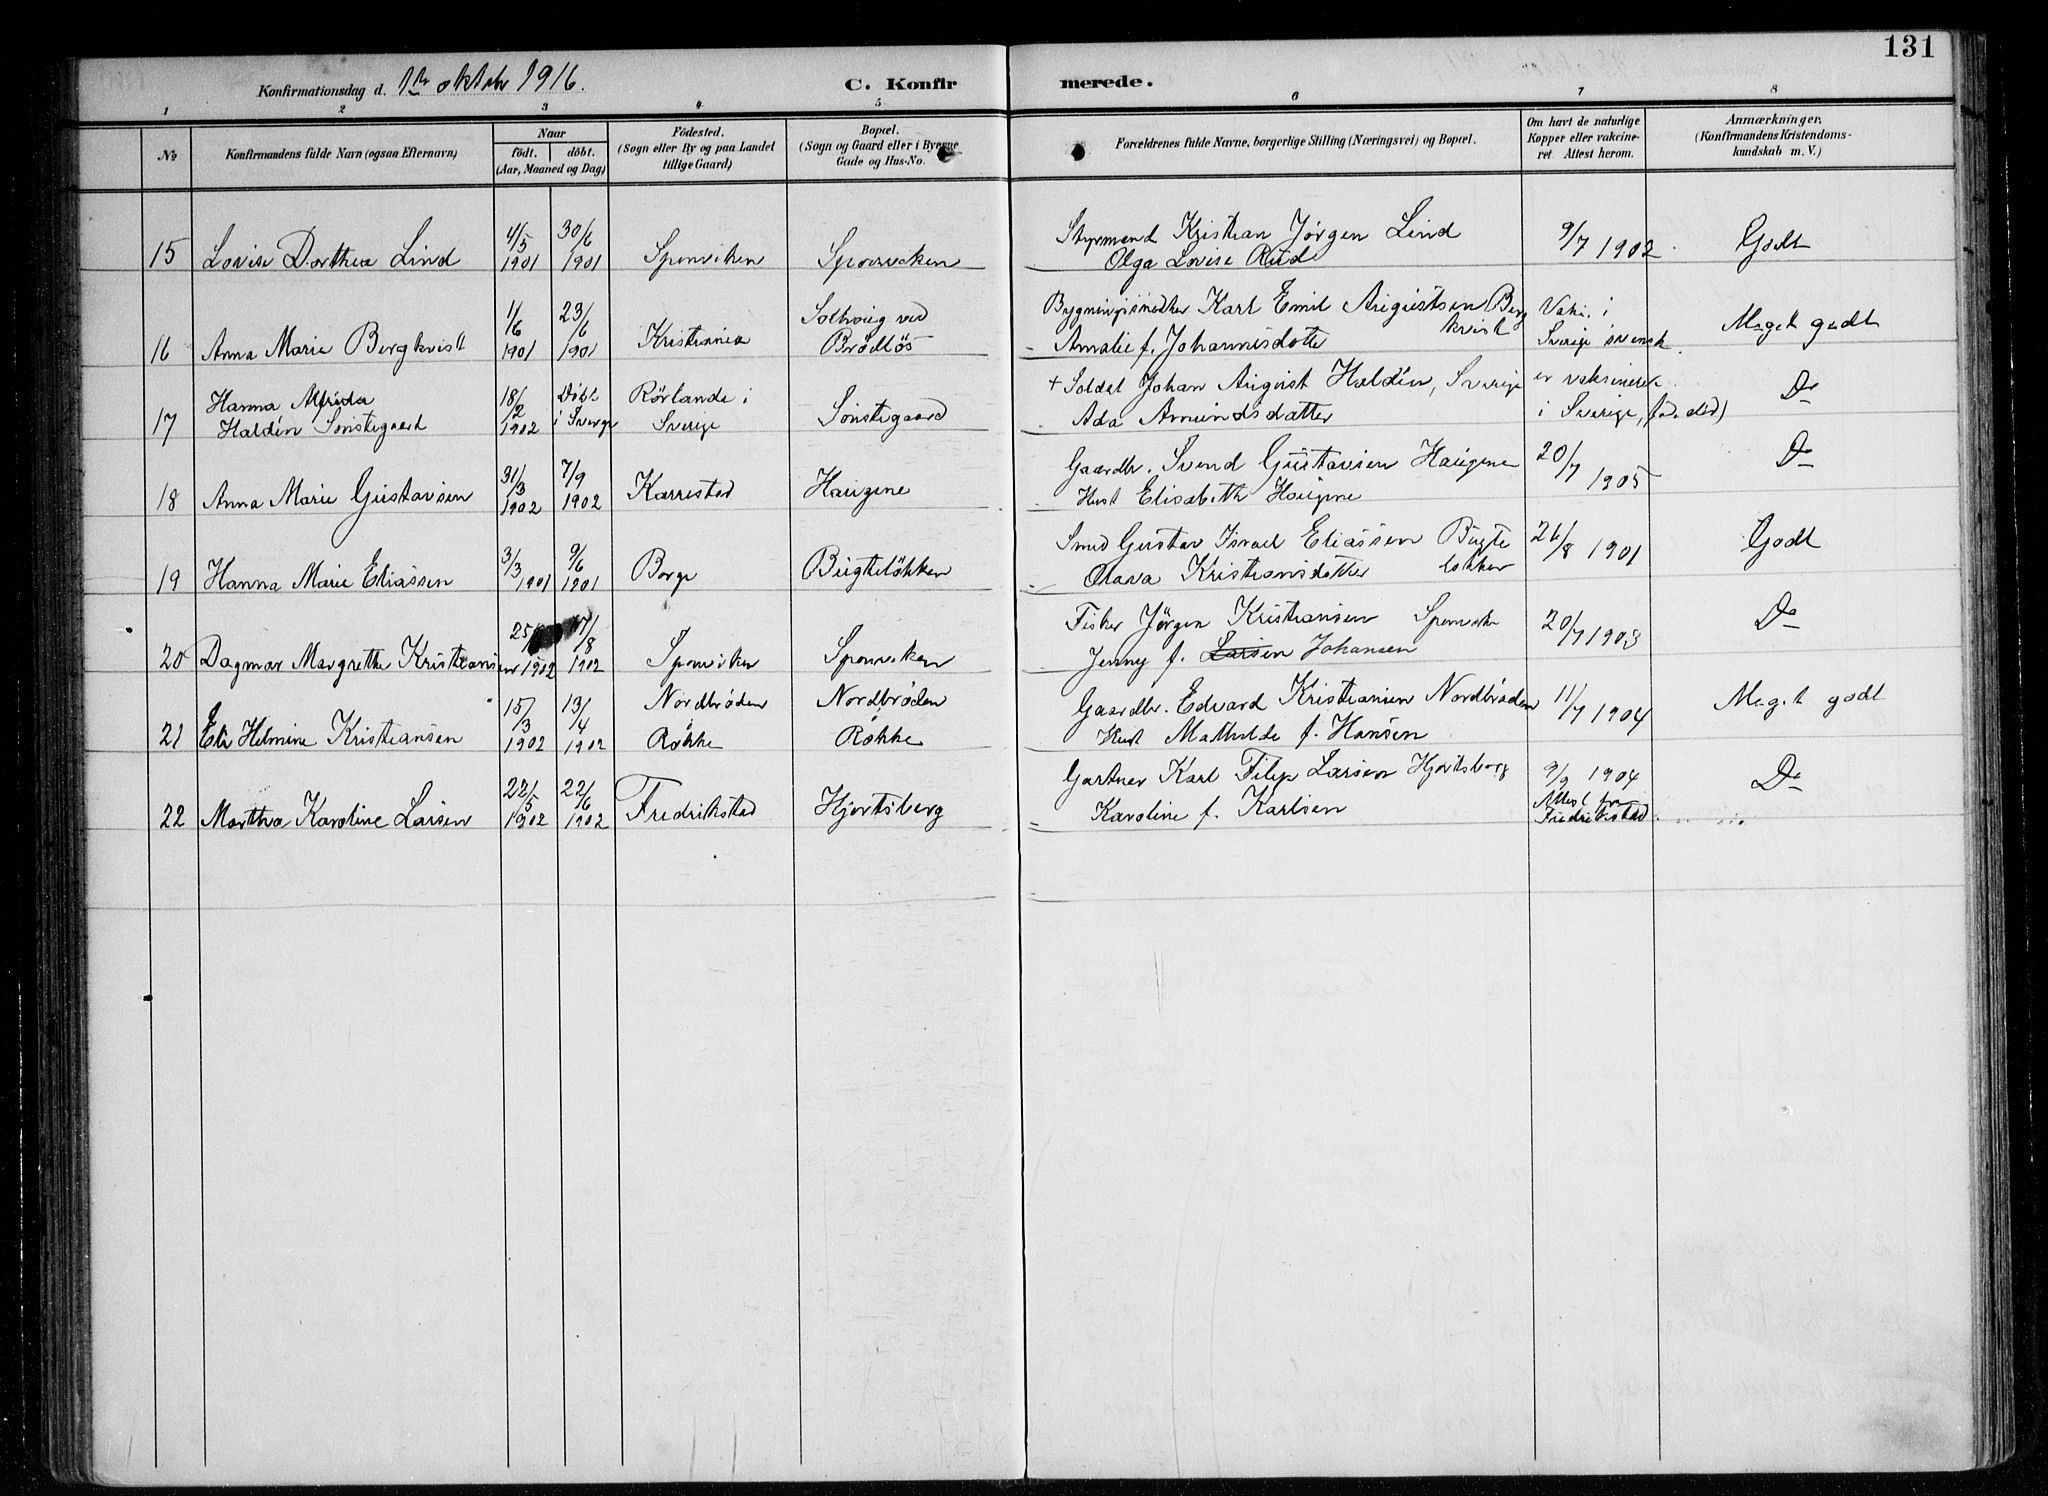 131
Konfirmationsdag d. 1ste oktober 1916. C. Konfirmerede.
1 2 3 4 5 6 7 8
No
Konfirmandens fulde Navn (ogsaa Efternavn)
Naar
födt. döbt.
(Aar, Maaned og Dag)
Födested.
(Sogn eller By og paa Landet
tillige Gaard)
Bopæl.
(Sogn og Gaard eller i Byerne
Gade og Hus-No.
Forældrenes fulde Navne, borgerlige Stilling (Næringsvei) og Bopæl.
Om havt de naturlige
Kopper eller vakcine-
ret. Attest herom.
Anmærkninger.
(Konfirmandens Kristendoms-
kundskab m. V.)
15 Lovise Dorthea Lind 4/5 1901 30/6 1901 Sponviken Sponviken
Styrmand Kristian Jörgen Lind
Olga Lovise Rud
9/7 1902 Godt
16 Anna Marie Bergkvist 1/6 1901 23/6 1901 Kristiania Solhaug ved
Brödlös
Bygningssnedker Karl Emil Augustsen Berg
kvist
Amalie f. Johannisdotter
Vaks. i
Sverige svensk
Meget godt
17 Hanna Alfrida
Haldén Sönstegaard
18/2 1902 Döbt
i Sverge
Rörlanda i
Sverige
Sönstegaard
+ Soldat Johan August Haldén, Sverige
Ada Amundsdatter
er vaksineret
i Sverige, (fad. död)
Do
18 Anna Marie Gustavsen 31/3 1902 7/9 1902 Karrestad Haugene
Gaardbr. Svend Gustavsen Haugene
Hust Elisabeth Haugene
20/7 1905 Do
19 Hanna Marie Eliassen 3/3 1901 9/6 1901 Borge Bugtelökken
Smed Gustav Israel Eliassen Bugte
lökken
Olava Kristiansdatter
26/8 1901 Godt
20 Dagmar Margrethe Kristiansen 25/ 1902 17/8 1902 Sponviken Sponviken
Fisker Jörgen Kristiansen Sponvika
Jenny f. Larsen Johansen
20/7 1903 Do
21 Eli Helmine Kristiansen 15/3 1902 13/4 1902 Nordbröden
Røkke
Nordbröden
Røkke
Gaardbr. Edvard Kristiansen Nordbröden
Hust Mathilde f. Hansen
11/7 1904 Meget godt
22 Martha Karoline Larsen 22/5 1902 22/6 1902 Fredrikstad Hjortsberg
Gartner Karl Filip Larsen Hjortsberg
Karoline f. Karlsen
9/9 1904
Attest fra
Fredrikstad
Do